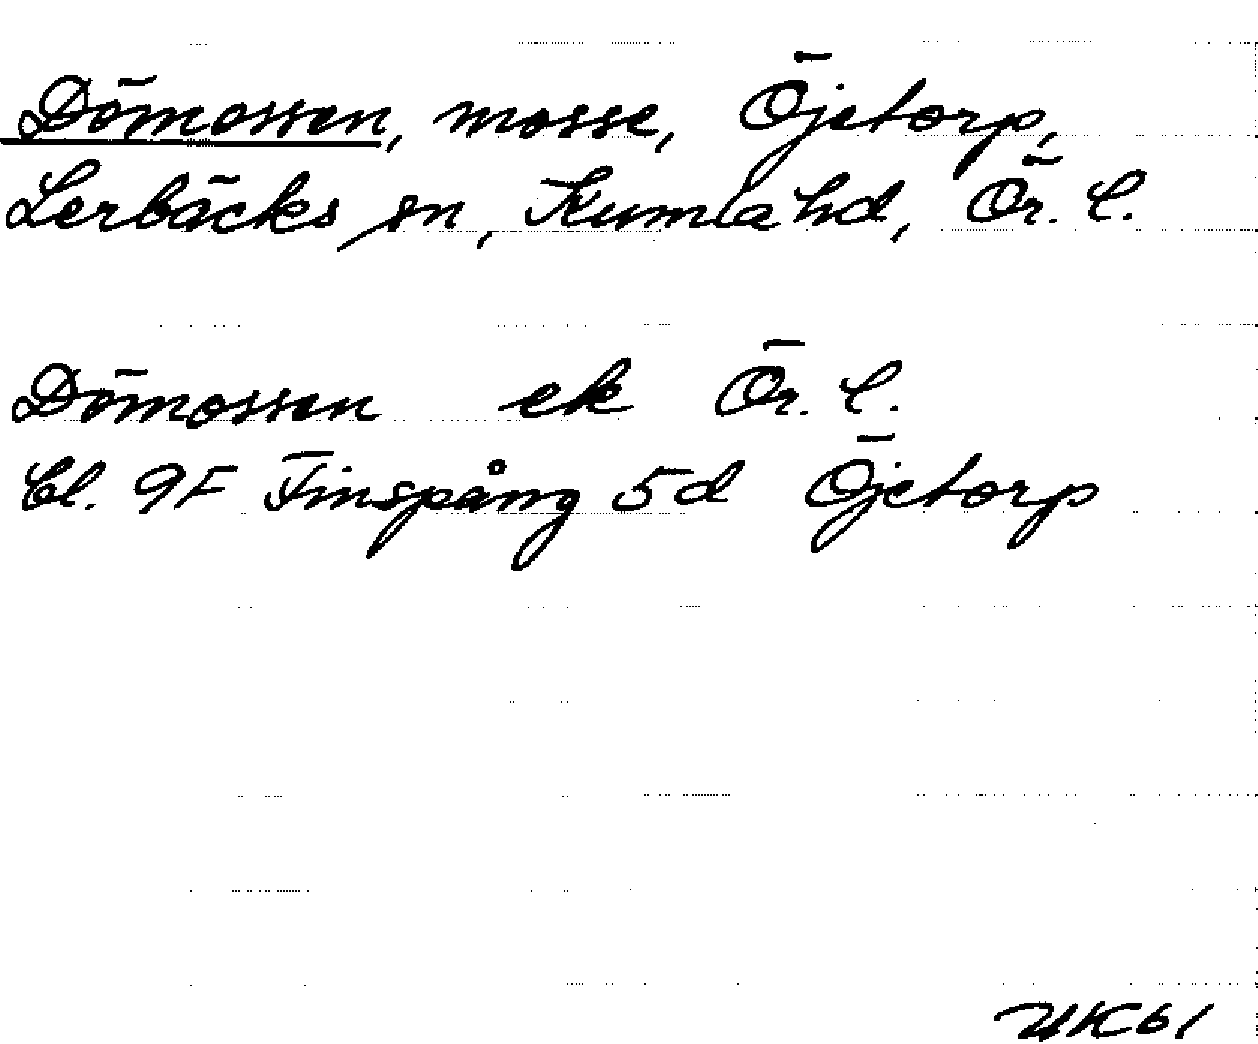 Dömossen, mosse, Öjetorp,
Lerbäcks sn, Kumla hd, Ör. l.
Dömossen ek Ör. l.
Bl. 9F Finspång 5d Öjetorp
UK61